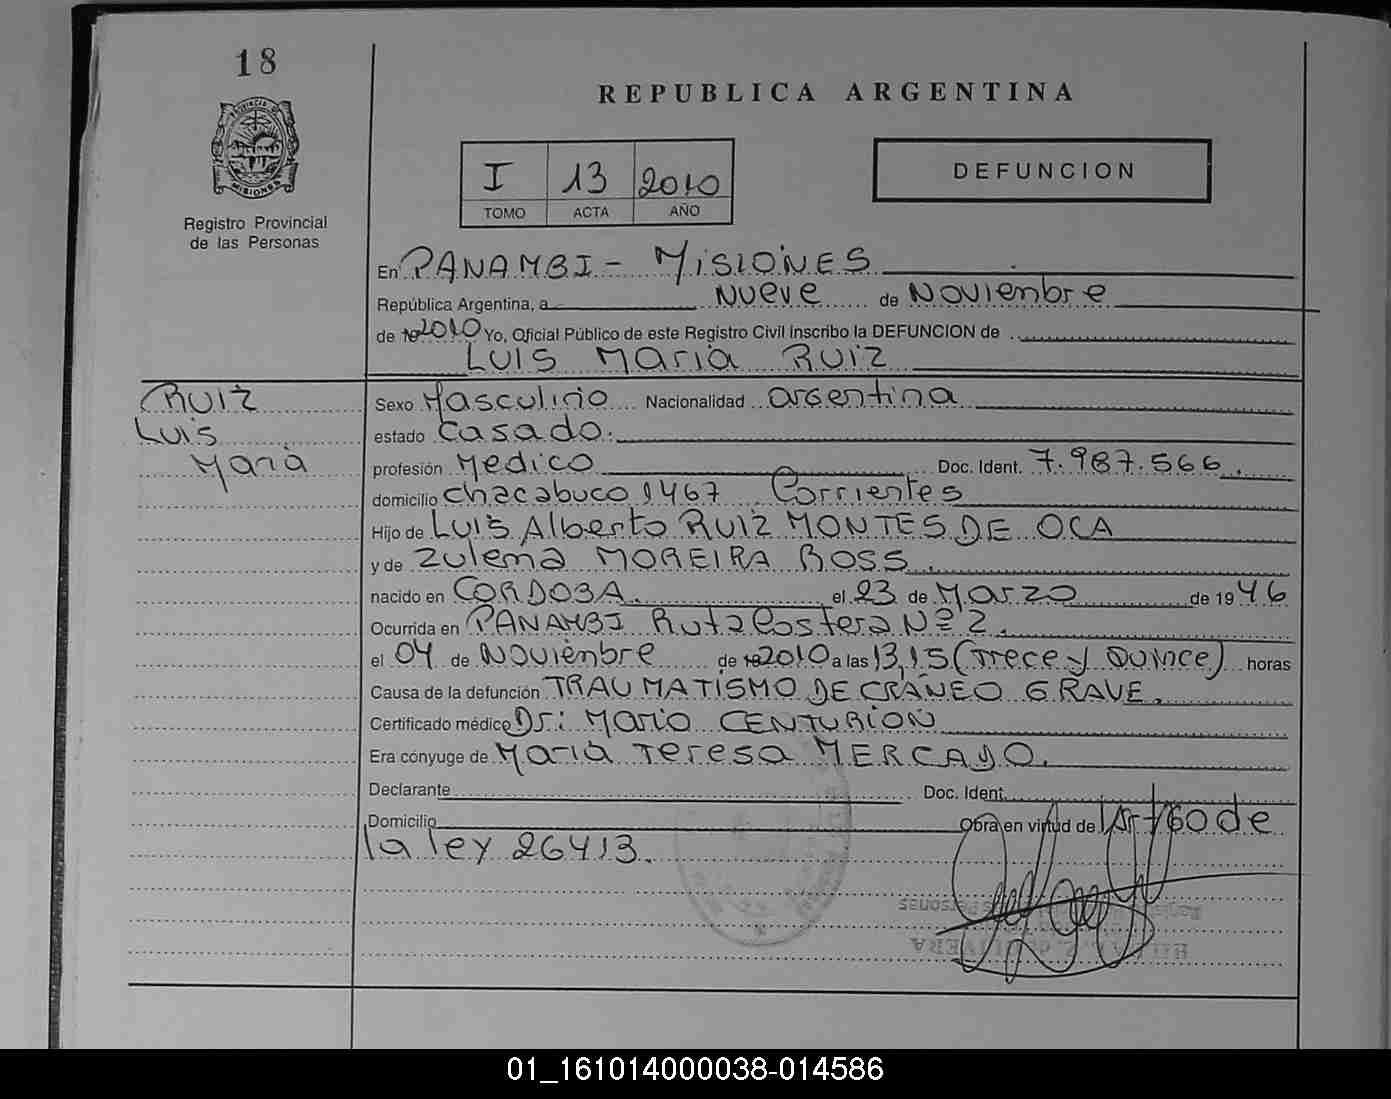 18
REPUBLICA ARGENTINA
I 13 2010
TOMO ACTA AÑO
DEFUNCION
PROVINCIA DE
MISIONES
Registro Provincial
de las Personas
En PANAMBI - MISIONES
República Argentina, a NUEVE de NOVIENBRE
de 19 2010 Yo, Oficial Público de este Registro Civil inscribo la DEFUNCION de
LUIS MARIA RUIZ
RUIZ
LUIS
MARIA
Sexo MASCULINO Nacionalidad ARGENTINA
estado CASADO.
profesión MEDICO Doc. Ident. 7.987.566.
domicilio chacabuco 1467 Corrientes
Hijo de LUIS Alberto RUIZ MONTES DE OCA
y de Zulema MOREIRA ROSS.
nacido en CORDOBA. el 23 de MARZO de 19 46
Ocurrida en PANAMBI Ruta Costera Nº 2.
el 04 de NOVIENBRE de 19 2010 a las 13,15 (Trece y Quince) horas
Causa de la defunción TRAUMATISMO DE CRÁNEO GRAVE.
Certificado médico Dr: Mario CENTURION
Era cónyuge de MARIA TERESA MERCADO.
Declarante Doc. Ident.
Domicilio Obra en virtud de Art 60 de
la ley 26413.
01_161014000038-014586